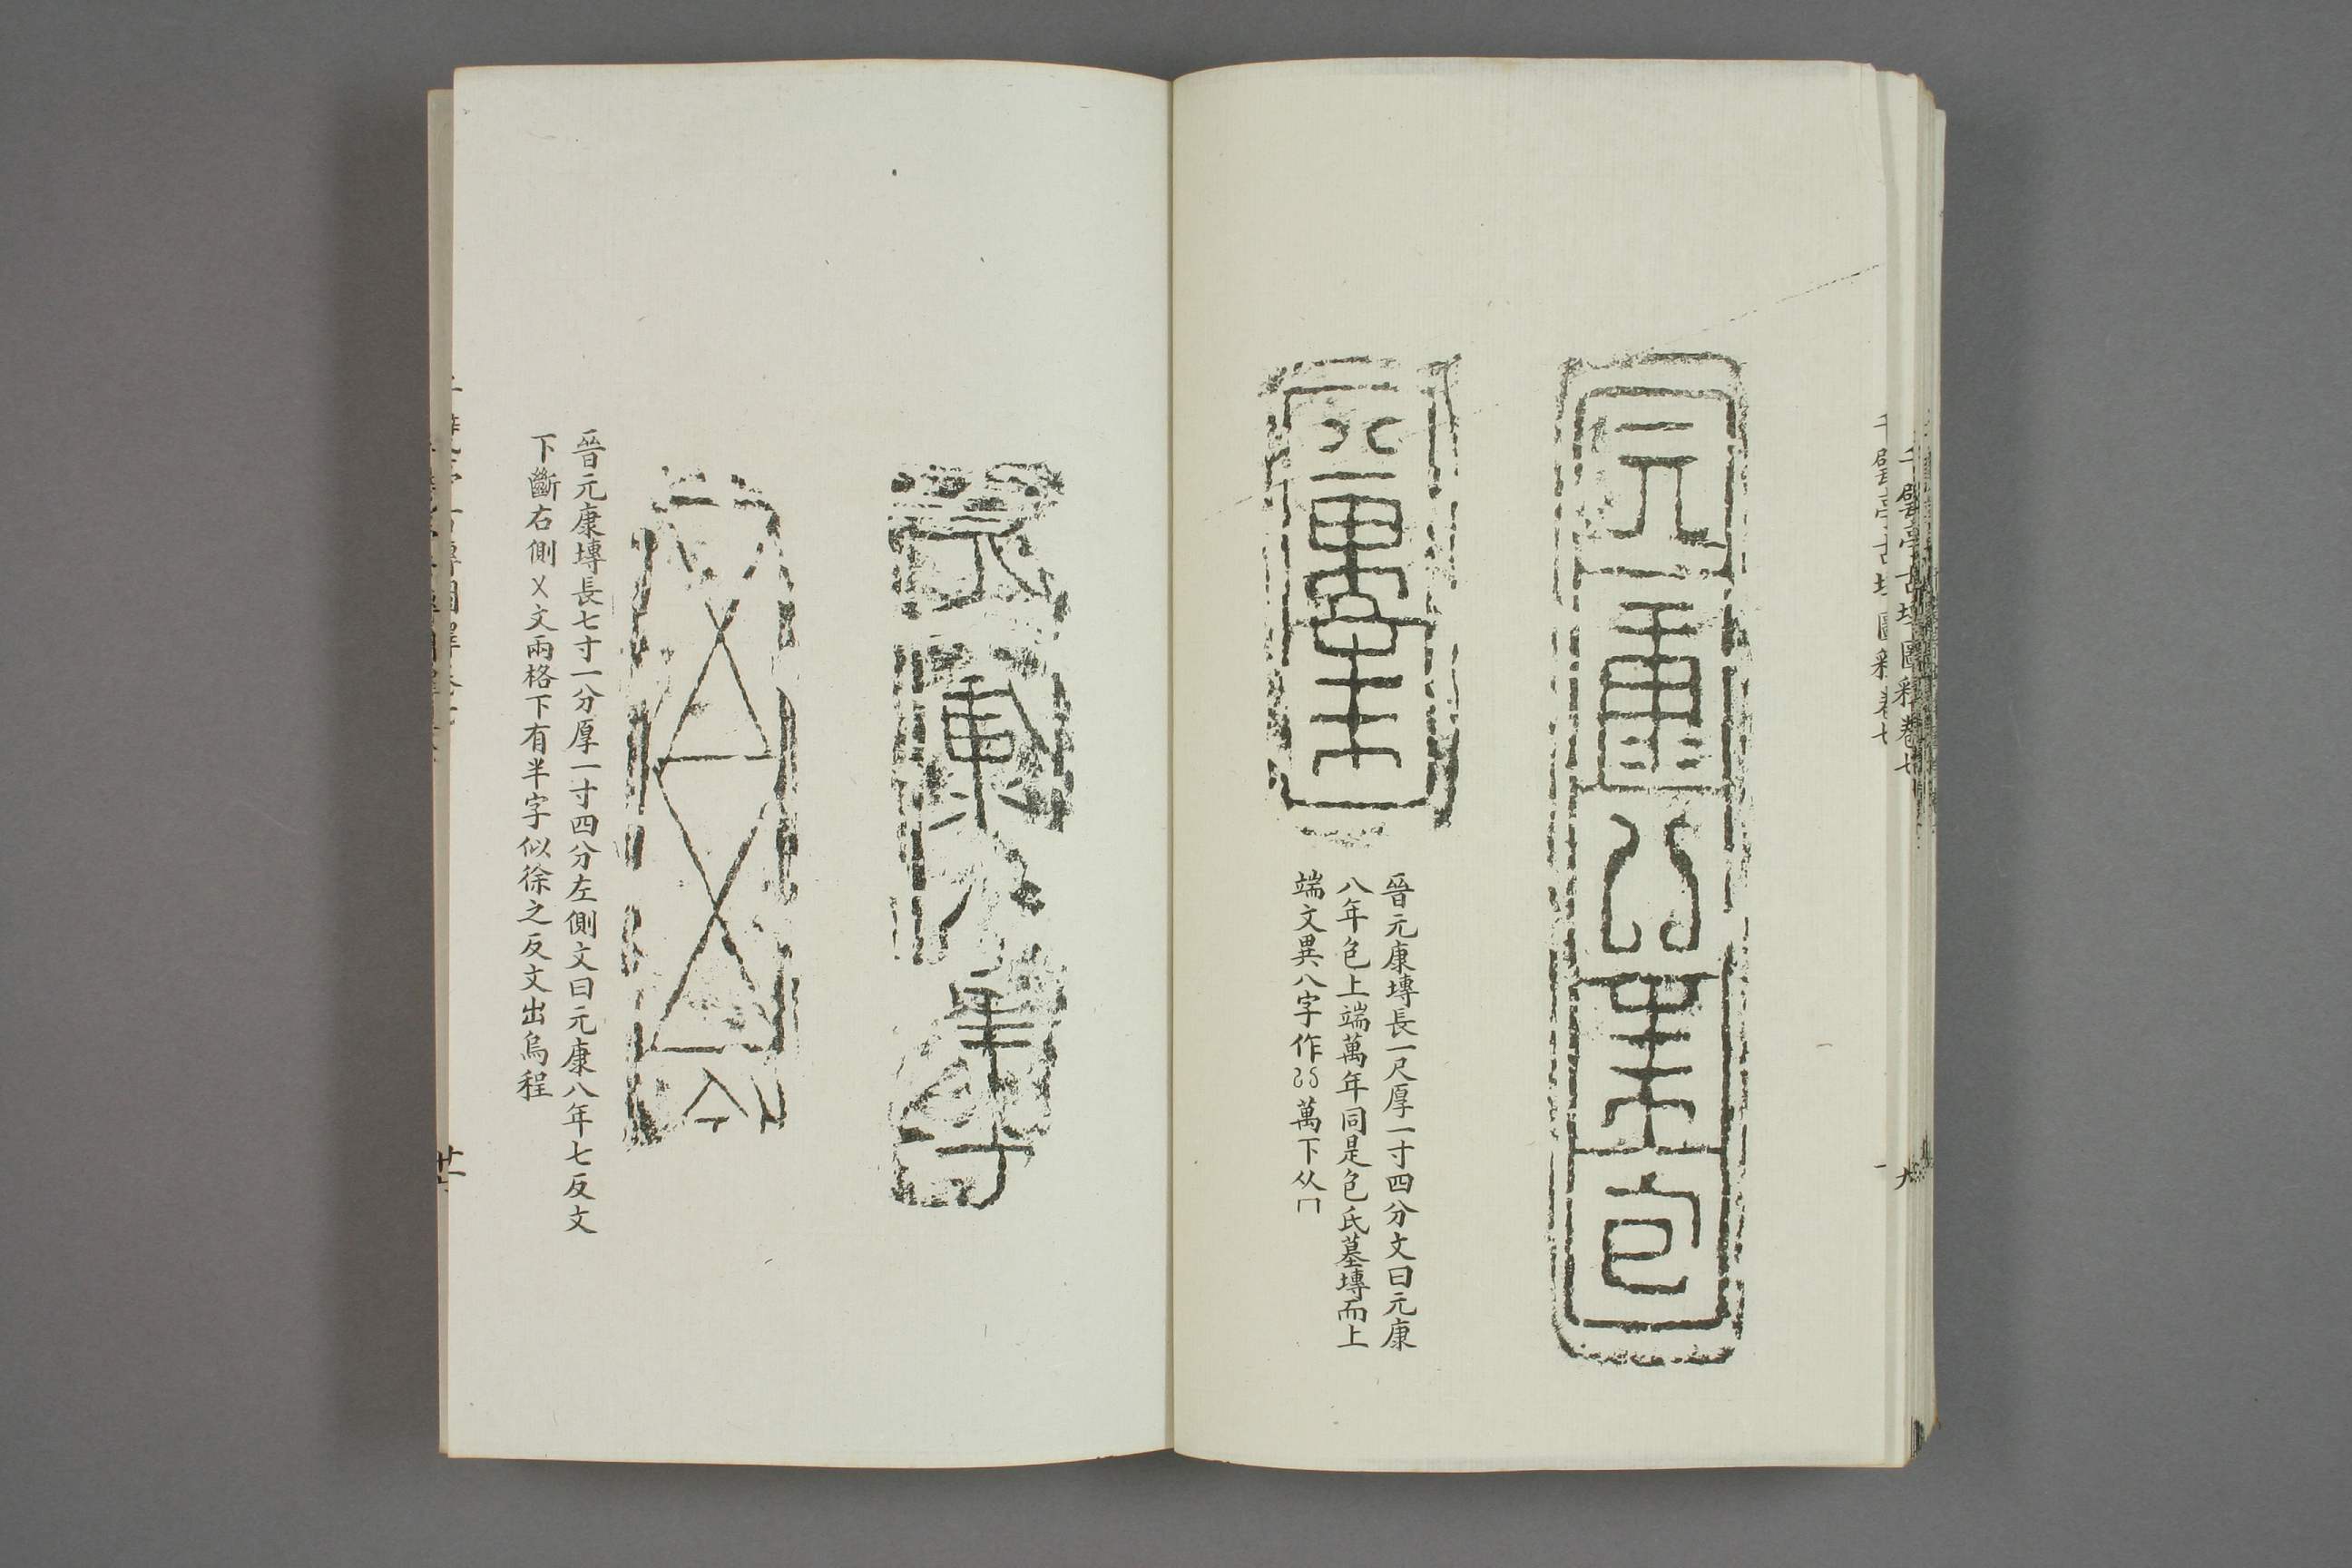 千甓亭古塼圖釋卷七
元康八年包
八萬年
晉元康塼長一尺厚一寸四分文曰元康
八年包上端萬年同是包氏墓塼而上
端文異八字作 萬下从冂
元康八年七
晉元康塼長七寸一分厚一寸四分左側文曰元康八年七反文
下斷右側㐅文兩格下有半字似徐之反文出烏程